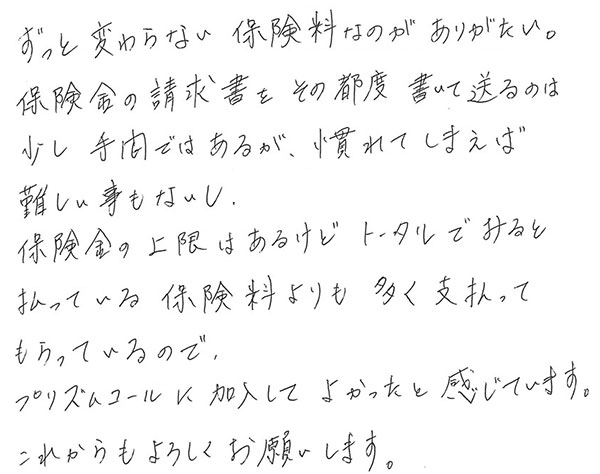 ずっと変わらない保険料なのがありがたい。
保険金の請求書をその都度書いて送るのは
少し手間ではあるが、慣れてしまえば
難しい事もないし、
保険金の上限はあるけどトータルでみると
払っている保険料よりも多く支払って
もらっているので、
プリズムコールに加入してよかったと感じています。
これからもよろしくお願いします。